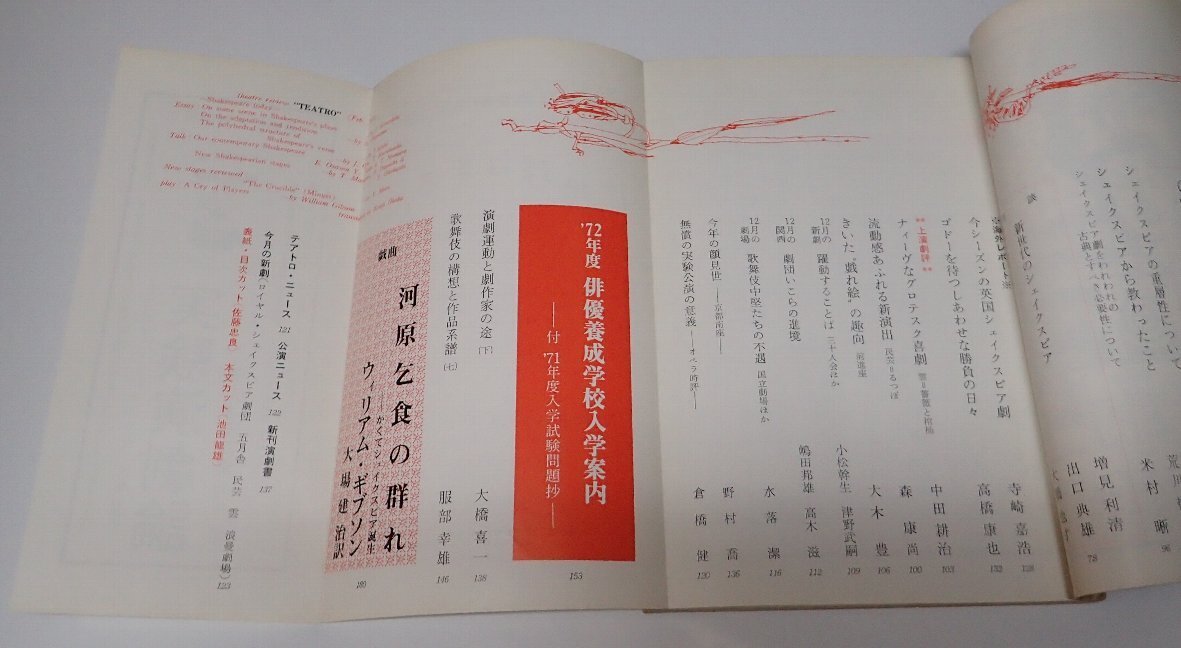 シェイクスピアの重層性について
シェイクスピアから教わったこと
米村 晰
96
シェイクスピア劇をわれわれの古典とすべき必要性について
増見利清
78
出口典雄
新世代のシェイクスピア
海外レポート
今シーズンの英国シェイクスピア劇
寺崎嘉浩
128
ゴドーを待つしあわせな勝負の日々
高橋康也
132
上演劇評
ナイーヴなグロテスク喜劇
中田耕治
103
流動感あふれる新演出 民芸=るつぼ
森 康尚
100
きいた“戯れ絵”の趣向 前進座
大木 豊
106
12月の新劇 躍動することば 三十人会ほか
小松幹生 津野武嗣
109
12月の関西 劇団いこらの進境
嶋田邦雄 高木 滋
112
12月の劇場 歌舞伎中堅たちの不遇 国立劇場ほか
水落 潔
116
今年の顔見世——京都南座——
野村 喬
136
無償の実験公演の意義——オペラ時評——
倉橋 健
120
’72年度 俳優養成学校入学案内
——付 ’71年度入学試験問題抄——
153
演劇運動と劇作家の途(下)
大橋喜一
138
歌舞伎の構想と作品系譜(七)
服部幸雄
146
戯曲
河原乞食の群れ
——かくてシェイクスピア誕生
ウィリアム・ギブソン
大場建治訳
169
テアトロ・ニュース 121 公演ニュース 122 新刊演劇書 137
今月の新劇(ロイヤル・シェイクスピア劇団 五月舎 民芸 雲 浪曼劇場) 123
表紙・目次カット・佐藤忠良 本文カット・池田龍雄
Theatre review "TEATRO"
Shakespeare today
Essay: On some scene in Shakespeare's plays
On the adaptation and tradition
The polyhedral structure of Shakespeare's verse
Talk: Our contemporary Shakespeare
New Shakespearian stages
New stages reviewed
"The Crucible" (Mingei)
play: A Cry of Players
by William Gibson